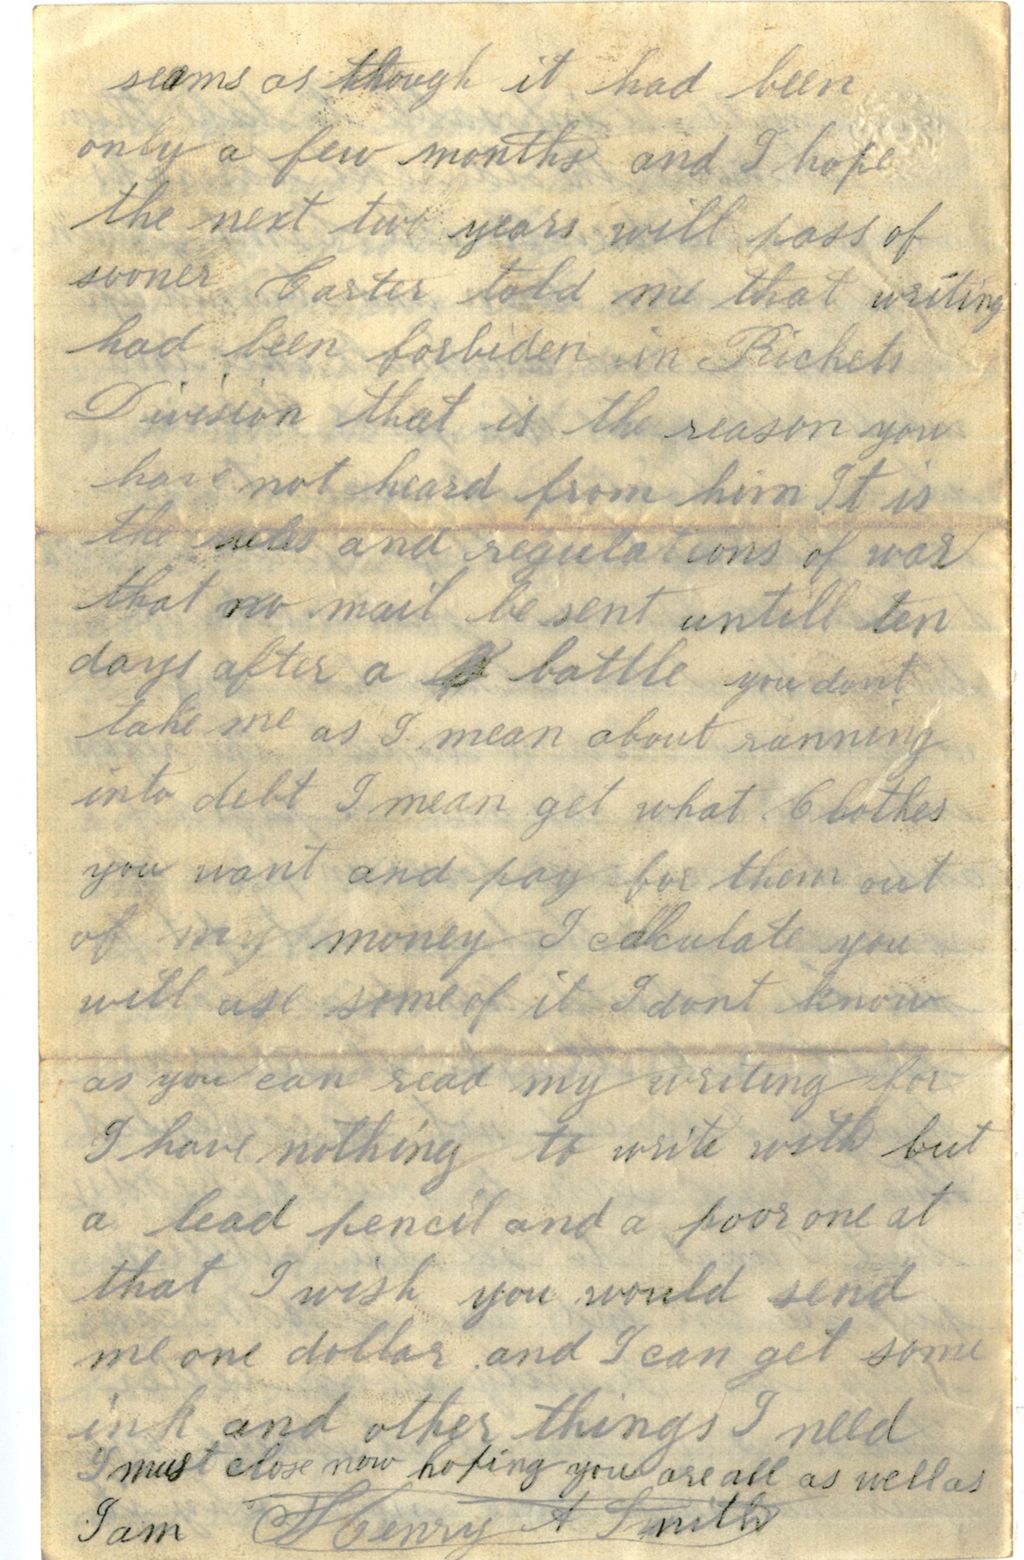 seams as though it had been
only a few months and I hope
the next two years will pass of
sooner Carter told me that writing
had been forbiden in Rickets
Division that is the reason you
have not heard from him It is
the rules and regulations of war
that no mail be sent untill ten
days after a battle you dont
take me as I mean about running
into debt I mean get what Clothes
you want and pay for them out
of my money I calculate you
will use some of it I dont know
as you can read my writing for
I have nothing to write with but
a lead pencil and a poor one at
that I wish you would send
me one dollar and I can get some
ink and other things I need
I must close now hoping you are all as well as
I am Henry A Smith